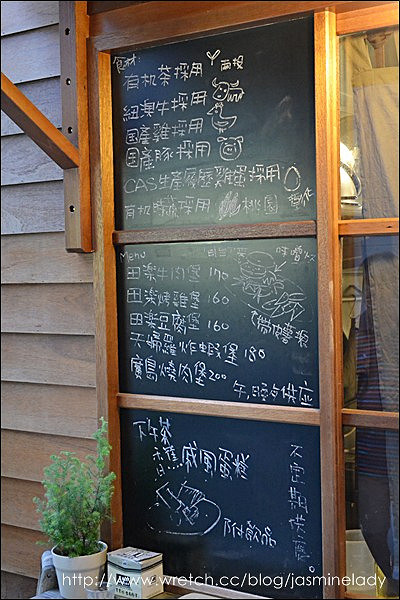 食材:
有机茶採用 南投
紐澳牛採用
国產雞採用
国產豚採用
CAS生產履歷雞蛋採用
有机時蔬採用 桃園
Menu
田楽牛肉堡 170
田楽烤雞堡 160
田楽豆腐堡 160
天婦羅炸蝦堡 180
廣島燒肉堡 200
午、晚餐供应
下午茶
戚風蛋糕
附飲品
不定期供應。
http://www.wretch.cc/blog/jasminelady